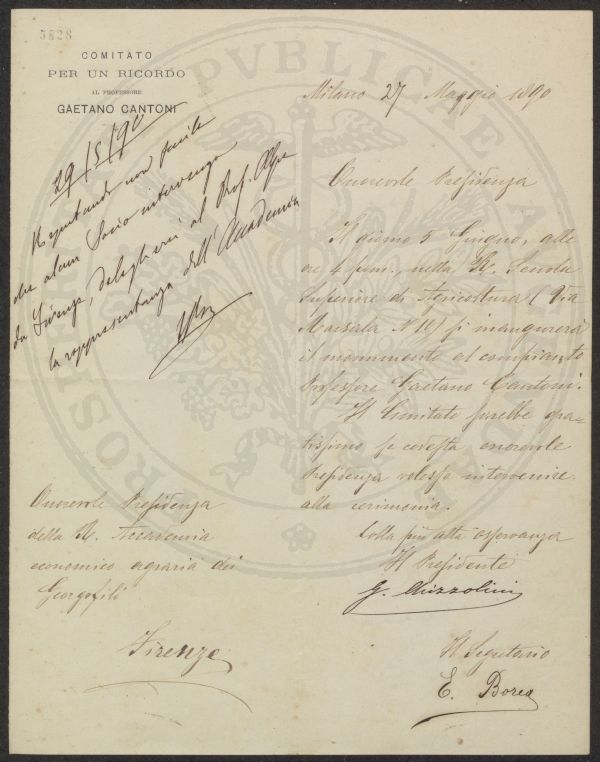 5828
COMITATO
PER UN RICORDO
AL PROFESSORE
GAETANO CANTONI
29/5/90
Reputando non facile
che alcun Socio intervenga
da Firenze, al Prof. Alpe
la rappresentanza dell'Accademia
Milano 27 Maggio 1890
Onorevole Presidenza
Il giorno 5 Giugno, alle
ore 4 pom., nella R. Scuola
Superiore di Agricoltura (Via
Marsala N 10) si inaugurerà
il monumento al compianto
Professore Gaetano Cantoni.
Il Comitato sarebbe gra=
tissimo se codesta onorevole
Presidenza volesse intervenire
alla cerimonia.
Colla più alta osservanza
Il Presidente
G. Chizzolini
Il Segretario
E. Borea
Onorevole Presidenza
della R. Accademia
economico agraria dei
Georgofili
Firenze
PROSPERITATI PVBLICAE AVGENDAE